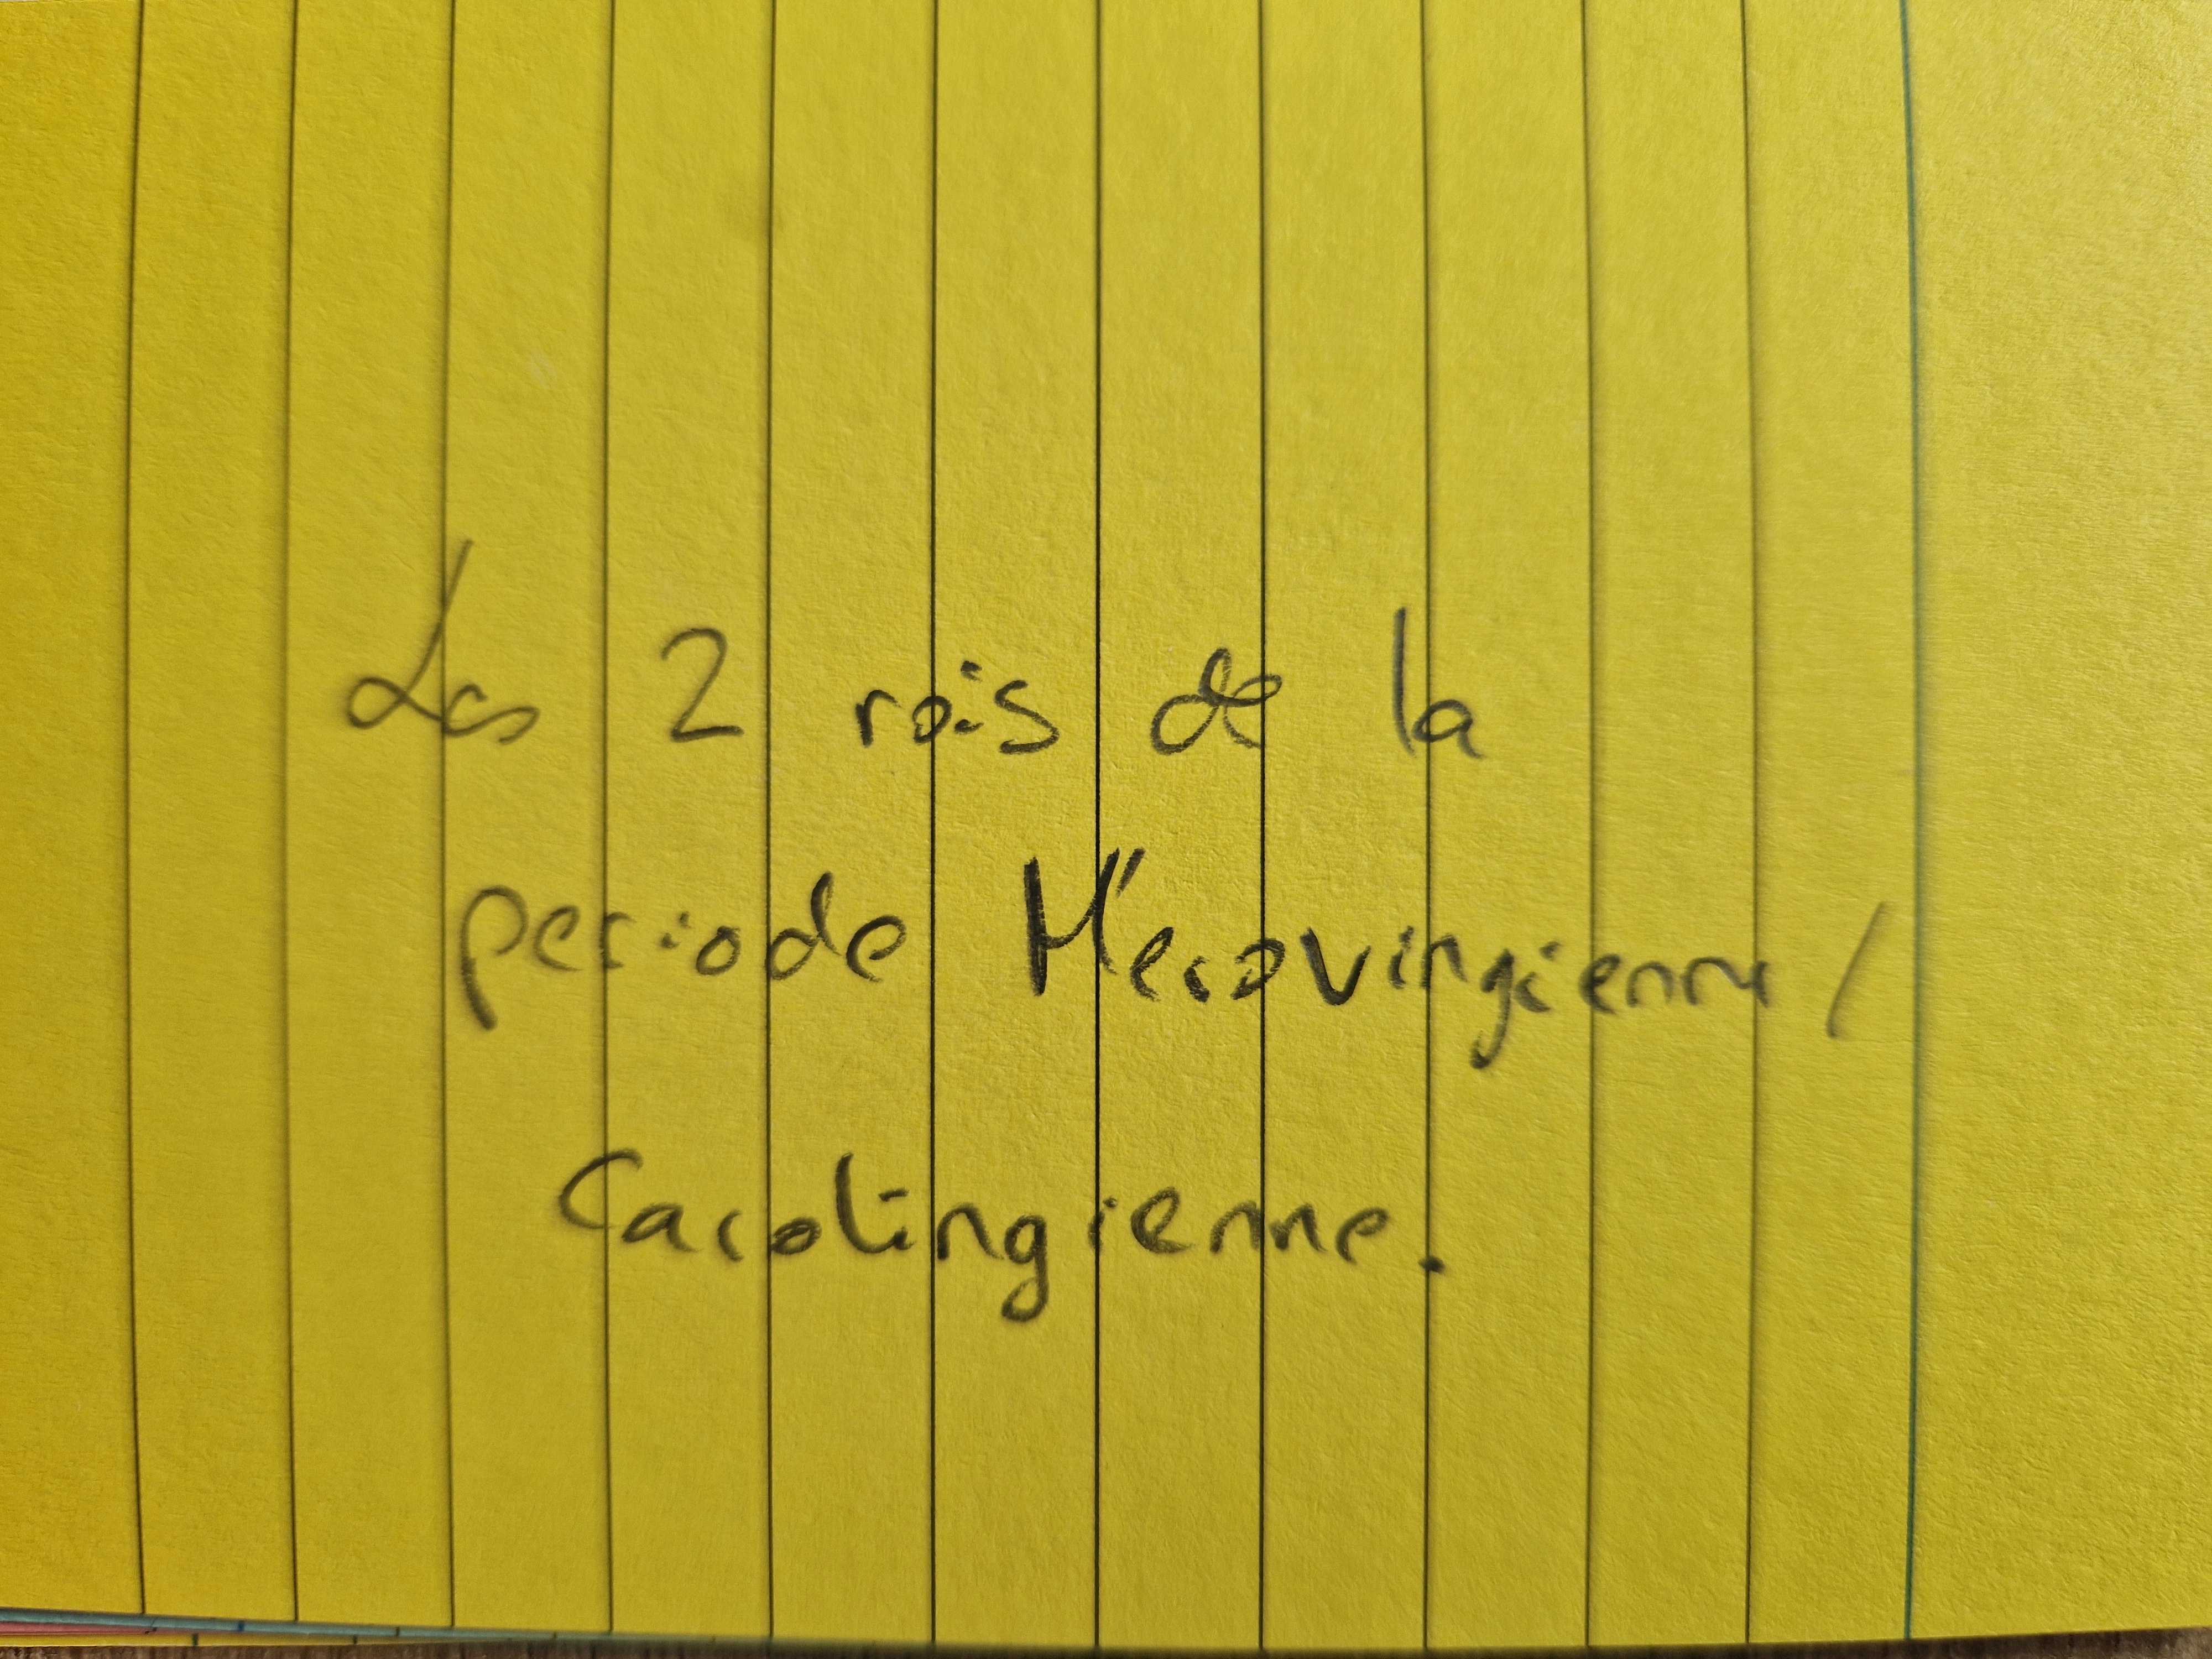 Les 2 rois de la
periode Mérovingienne /
Carolingienne.